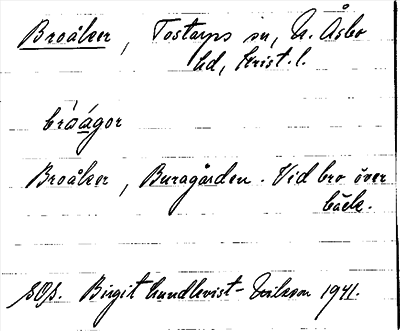 Broåker, Tostarps sn, N. Åsbo
hd, Krist. l.
bråågor
Broåker, Buragården. Vid bro över
bäck.
SOJ. Birgit Lundkvist-Eriksson 1941.